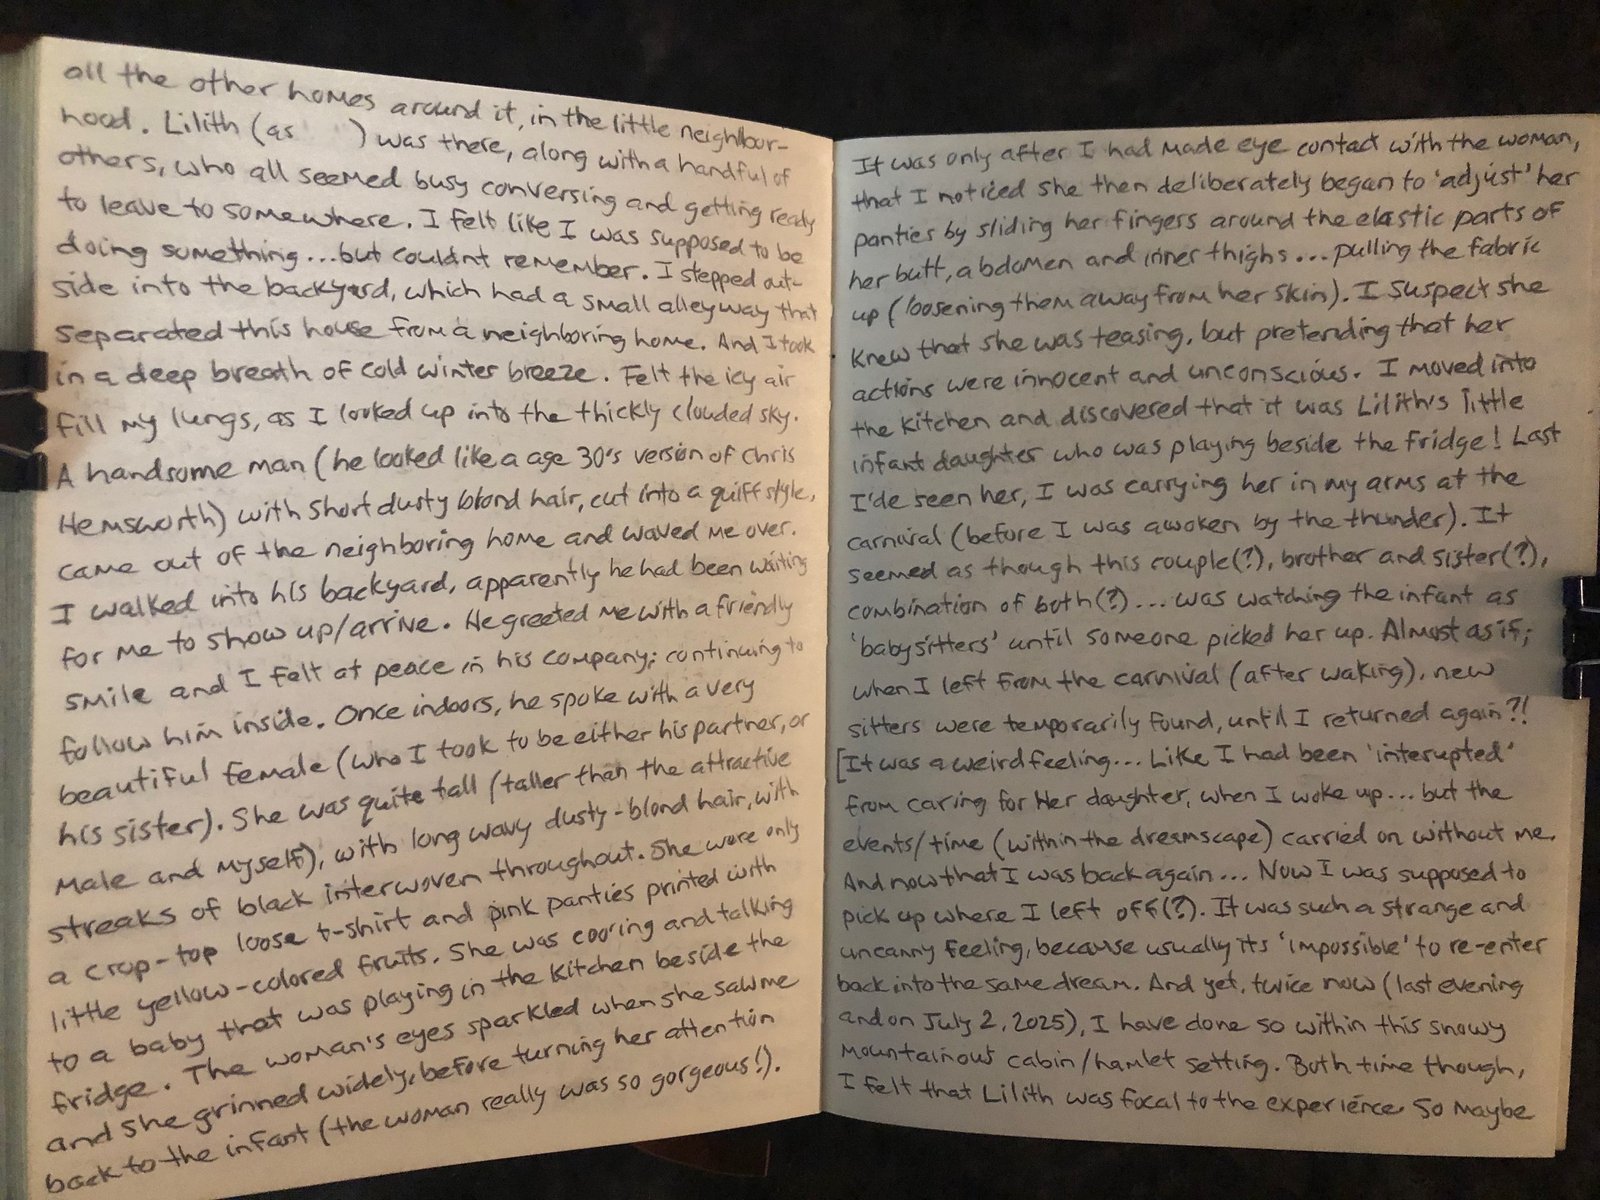 all the other homes around it, in the little neighbor-
hood. Lilith (as ) was there, along with a handful of
others, who all seemed busy conversing and getting ready
to leave to somewhere. I felt like I was supposed to be
doing something...but couldnt remember. I stepped out-
side into the backyard, which had a small alleyway that
separated this house from a neighboring home. And I took
in a deep breath of cold winter breeze. Felt the icy air
fill my lungs, as I looked up into the thickly clouded sky.
A handsome man (he looked like a age 30's version of Chris
Hemsworth) with short dusty blond hair, cut into a quiff style,
came out of the neighboring home and waved me over.
I walked into his backyard, apparently he had been waiting
for me to show up/arrive. He greeted me with a friendly
smile and I felt at peace in his company; continuing to
follow him inside. Once indoors, he spoke with a very
beautiful female (who I took to be either his partner, or
his sister). She was quite tall (taller than the attractive
male and myself), with long wavy dusty-blond hair, with
streaks of black interwoven throughout. She wore only
a crop-top loose t-shirt and pink panties printed with
little yellow-colored fruits. She was cooing and talking
to a baby that was playing in the kitchen beside the
fridge. The woman's eyes sparkled when she saw me
and she grinned widely, before turning her attention
back to the infant (the woman really was so gorgeous!).
It was only after I had made eye contact with the woman,
that I noticed she then deliberately began to 'adjust' her
panties by sliding her fingers around the elastic parts of
her butt, abdomen and inner thighs...pulling the fabric
up (loosening them away from her skin). I suspect she
knew that she was teasing, but pretending that her
actions were innocent and unconscious. I moved into
the kitchen and discovered that it was Lilith's little
infant daughter who was playing beside the fridge! Last
I'de seen her, I was carrying her in my arms at the
carnival (before I was awoken by the thunder). It
seemed as though this couple(?), brother and sister(?),
combination of both(?)... was watching the infant as
'babysitters' until someone picked her up. Almost as if;
when I left from the carnival (after waking), new
sitters were temporarily found, until I returned again?!
[It was a weird feeling... Like I had been 'interupted'
from caring for Her daughter, when I woke up... but the
events/time (within the dreamscape) carried on without me.
And now that I was back again... Now I was supposed to
pick up where I left off(?). It was such a strange and
uncanny feeling, because usually its 'impossible' to re-enter
back into the same dream. And yet, twice now (last evening
and on July 2, 2025), I have done so within this snowy
mountainous cabin/hamlet setting. Both time though,
I felt that Lilith was focal to the experience. So maybe